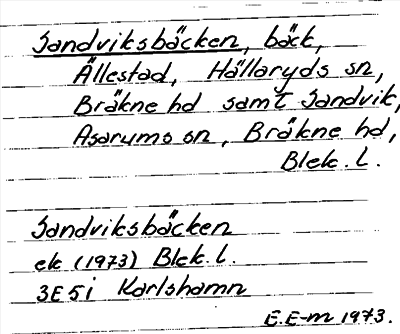 Sandviksbäcken, bäck,
Ällestad, Hällaryds sn,
Bräkne hd samt Sandvik,
Asarums sn, Bräkne hd,
Blek. l.
Sandviksbäcken
ek (1973) Blek. l.
3E5i Karlshamn
E.E-m 1973.